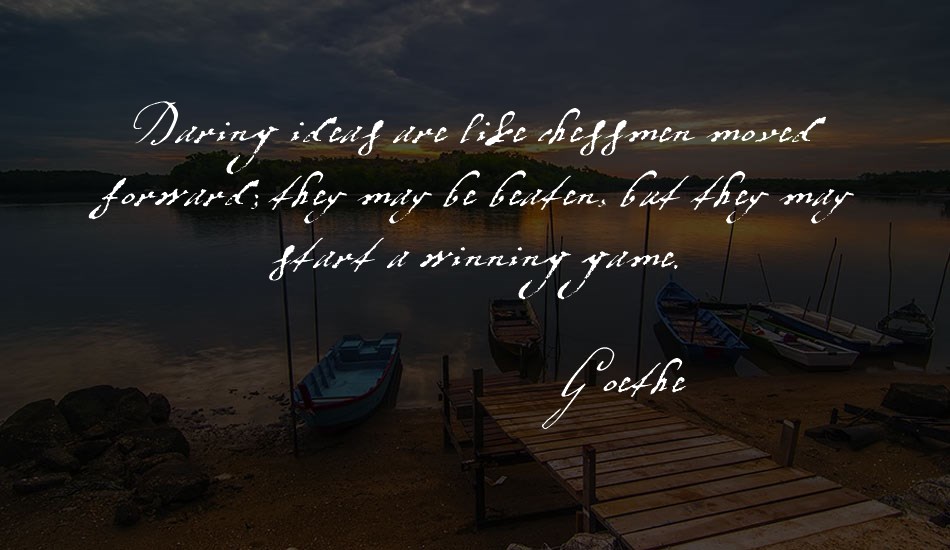 Daring ideas are like chessmen moved
forward; they may be beaten, but they may
start a winning game.
Goethe